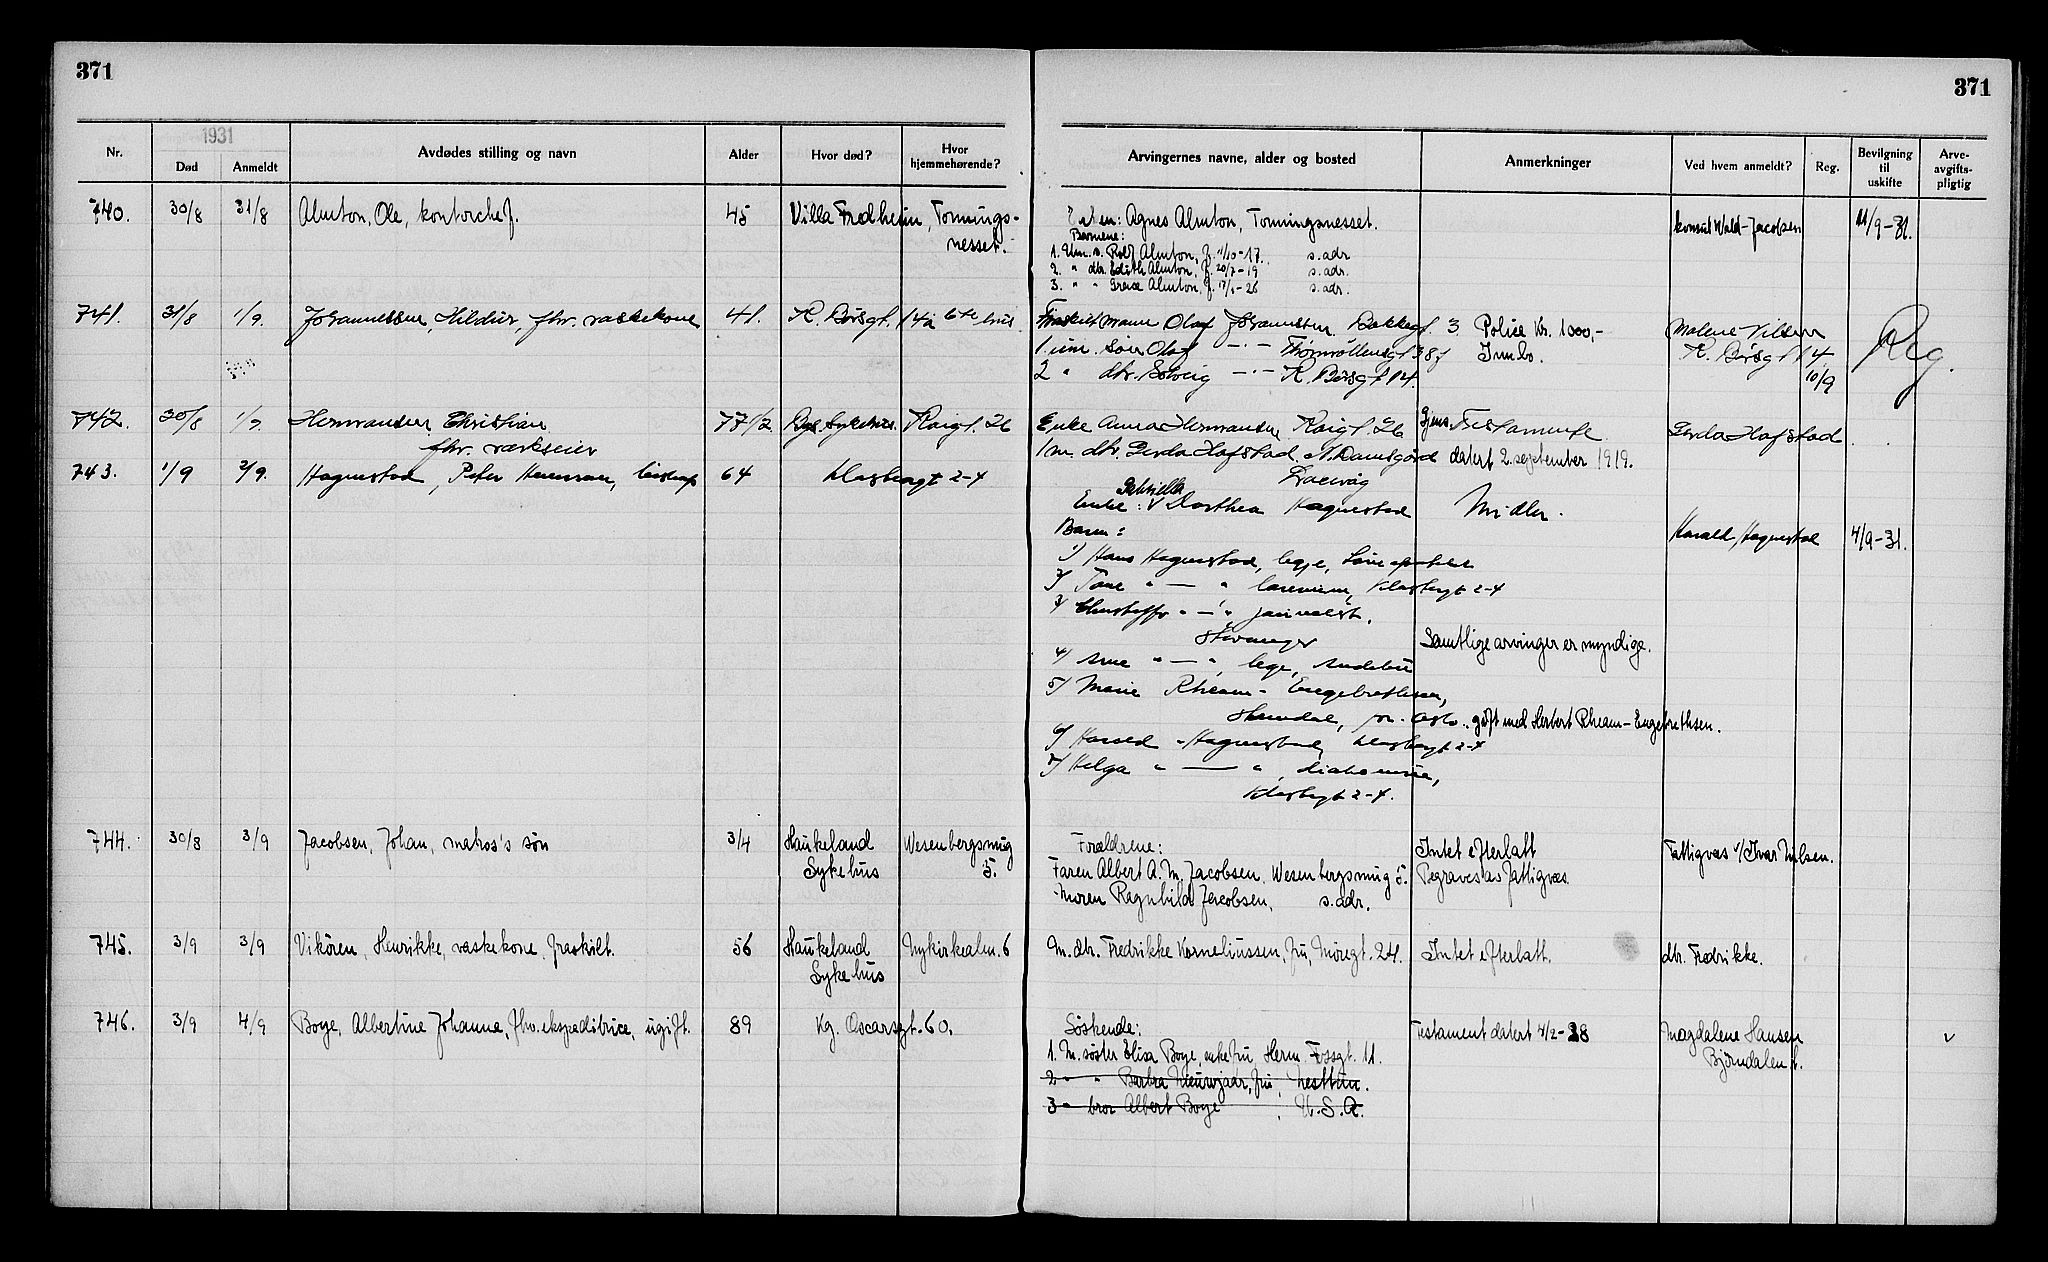 371
371
1931
Nr.
Død
Anmeldt
Avdødes stilling og navn
Alder
Hvor død?
Hvor hjemmehørende?
Arvingernes navne, alder og bosted
Anmerkninger
Ved hvem anmeldt?
Reg.
Bevilgning til uskifte
Arve-avgifts-pligtig
740. 30/8 31/8 Almton, Ole, kontorchef. 45 Villa Fredheim, Tornnings-
nesset.
Enken: Agnes Almton, Tornningsnesset.
Barnene:
1. Um. s. Rolf Almton, f. 11/10-17. s. adr
2. " dtr. Edith Almton, f. 20/7-19 s. adr.
3. " " Grace Almton, f. 17/1-26 s. adr.
konsul Wald-Jacobsen 11/9-31.
741. 31/8 1/9. Johannessen, Hildur, fhv. vaskekone 41. K. Børsgt. 14a 6te hus
Fraskilt mann Olaf Johannessen Bakkegt. 3 Police kr. 1000,-
1. um. søn Olaf -"- 38 Innbo.
2 " dtr. Solveig -"- K. Børsgt 14.
Malene Nilsen
K. Børsgt 14
10/9
Reg.
742. 30/8 1/9. Hermansen Christian 77 1/2 Byg. sykehus. Kaigt. 26
fhv. verkseier
Enke Anna Hermansen Kaigt. 26 Gjens. Testamente
1 m. dtr. Gerda Hafstad. N. Damsgård datert 2. september 1919.
Laxevåg
Gerda Hafstad
743. 1/9 2/9. Hognestad, Peter Hersleb, biskop 64 Klosterget 2-4
Enke: Gabriella Dorthea Hognestad Midler.
Barn:
1) Hans Hognestad, lege,
2) Tore " — " Klostergt 2-4
3) Christoffer " — " journalist,
Stavanger
Samtlige arvinger er myndige.
4) Arne " — ", lege, Andebu
5) Marie Rheam-Engebrethsen,
gift med Herbert Rheam-Engebrethsen.
6) Harald Hognestad, Klostergt 2-4
7) Helga " — ",
Klostergt 2-4.
Harald Hognestad 4/9-31.
744. 30/8 3/9 Jacobsen, Johan, matros's søn 3/4 Haukeland Wesenbergsmug
Sykehus 5.
Forældrene:
Faren Albert A. M. Jacobsen, Wesenbergsmug 5.
Moren Ragnhild Jacobsen, s. adr.
Intet efterlatt
Begraves av fattigvæs.
Fattigvæs v/Ivar Nilsen.
745. 3/9 3/9 Vikøren, Henrikke, vaskekone, fraskilt. 56 Haukeland Nykirkealm. 6
Sykehus
M. dtr. Fredrikke Korneliussen, fru, Møregt. 24. Intet efterlatt. dtr. Fredrikke.
746. 3/9 4/9 Boye, Albertine Johanne, fhv. ekspeditrice, ugift. 89 Kg. Oscarsgt. 60.
Søskende:
1. M. søster Elisa Boye, enkefru, Herm. Fossgt. 11.
2 " " Barbra Nieuwejaar, fru, Nesttun.
3 " bror Albert Boye, U.S.A.
Testament datert 4/2-28
Magdalene Hansen
Bjørndalen